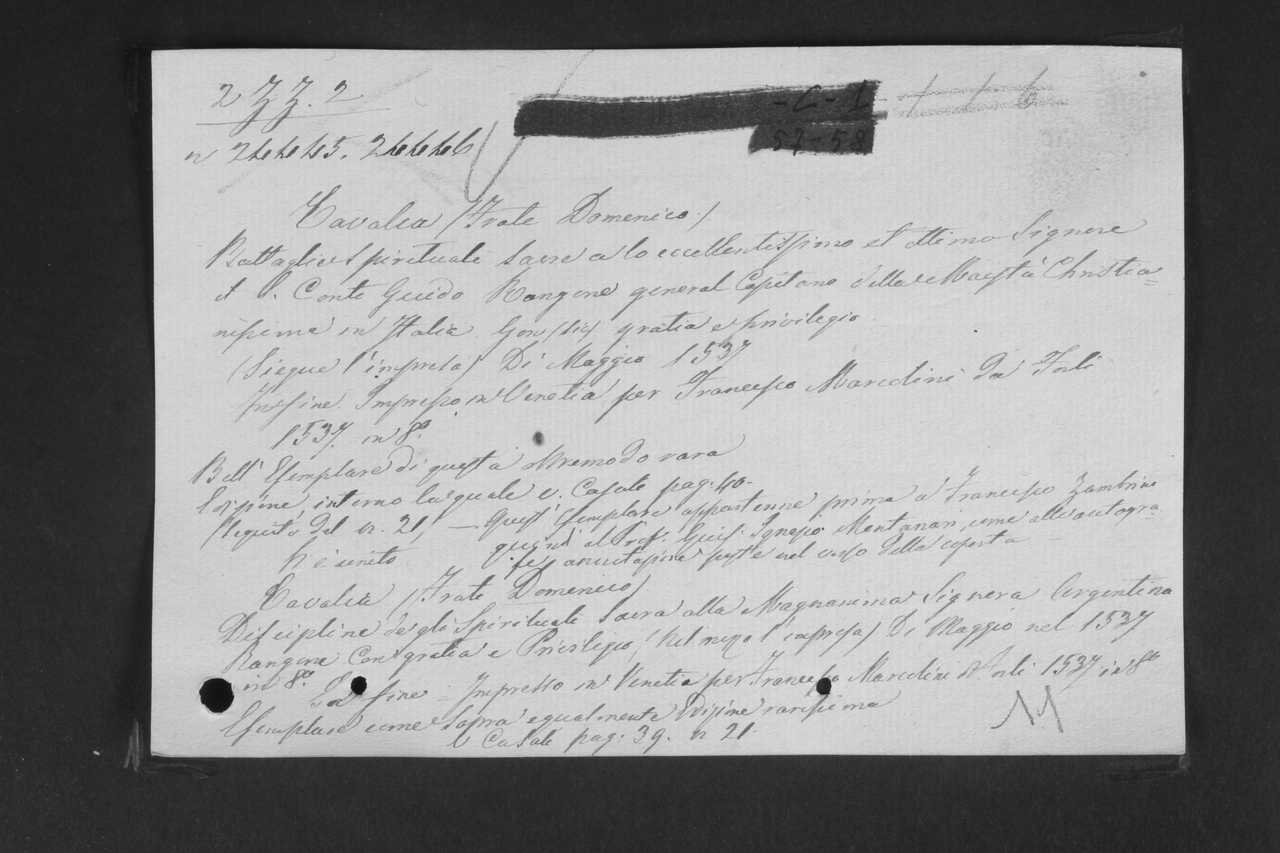 2 ZZ. 2
-C-I
n 24445. 24446
57-58
Cavalca (Frate Domenico)
Battaglie Spirituale Sacre a lo eccellentissimo et ottimo Signore
il S. Conte Guido Rangone general Capitano della Maestà Christia=
nissima in Italia. Gon (sic) gratia e privilegio.
(Siegue l'impresa) Di Maggio 1537
In fine. Impresso in Venetia per Francesco Marcolini da Forlì
1537. in 8º
Bell' Esemplare di questa oltremodo rara
Edizione, intorno la quale v. Casale pag: 40.
Seguito del n. 21 — Quest' Esemplare appartenne prima a Francesco Zambrini
quindi al Prof. Giuse. Ignazio Montanari, come alle autogra
fe annotazioni poste nel verso della coperta
N'è unito
Cavalca (Frate Domenico)
Disciplina degli Spirituali Sacra alla Magnanima Signora Argentina
Rangona Con gratia e Privilegio, (Nel mezzo l'impresa) Di Maggio nel 1537
in 8º
In fine - Impresso in Venetia per Francesco Marcolini da Forlì 1537 in 8º
Esemplare come sopra egualmente edizione rarissima
v Casale pag: 39. n 21.
M